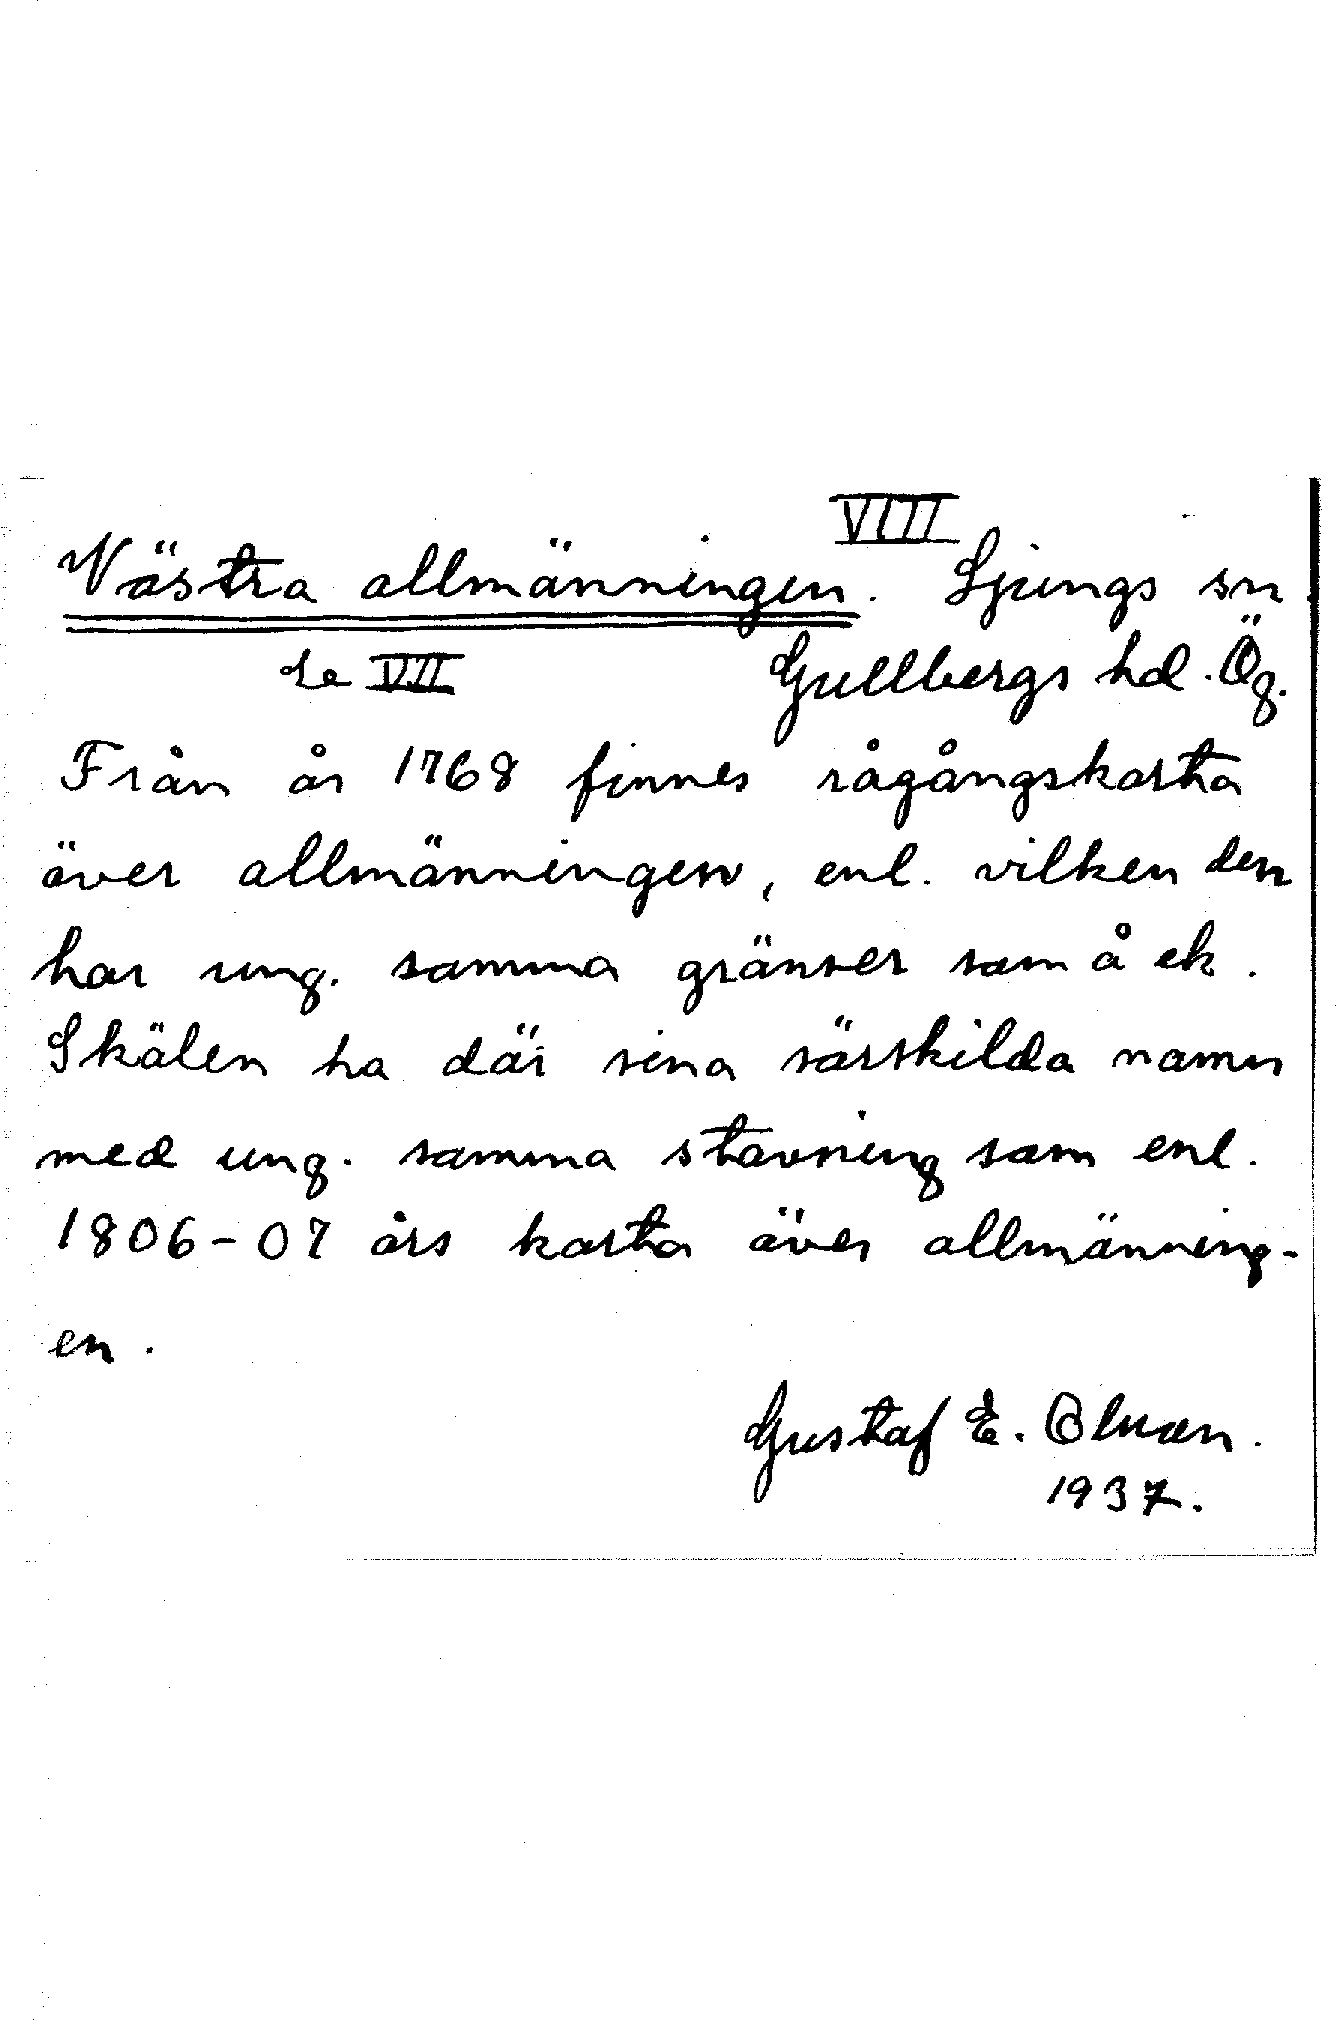 VIII
Västra allmänningen. Ljungs sn.
Se VII Gullbergs hd. Ög.
Från år 1768 finnes rågångskarta
över allmänningen, enl. vilken den
har ung. samma gränser som å ek.
Skälen ha där sina särskilda namn
med ung. samma stavning som enl.
1806-07 års karta över allmänning-
en.
Gustaf E.
1937.